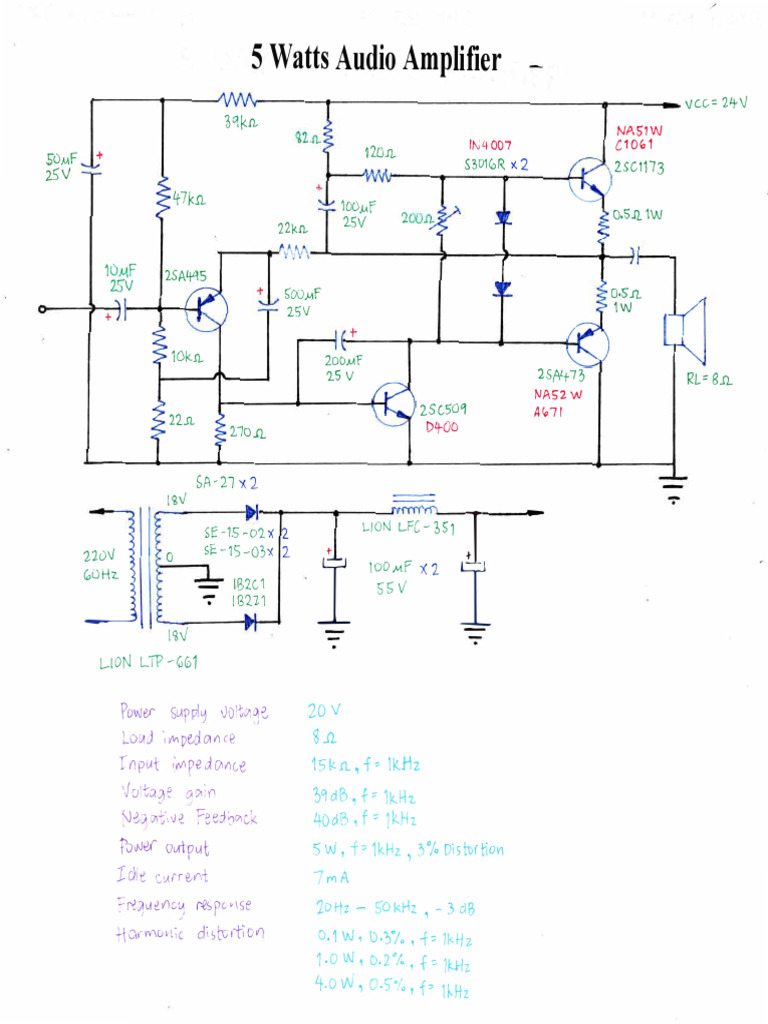 5 Watts Audio Amplifier
VCC = 24V
39kΩ
NA51W
C1061
82Ω
IN4007
120Ω
S3016R x 2
2SC1173
50µF
25V
+
47kΩ
+
100µF
25V
200Ω
0.5Ω 1W
22kΩ
10µF
25V
2SA495
+
500µF
25V
0.5Ω
1W
+
+
10kΩ
200µF
25V
2SA473
RL = 8Ω
NA52W
A671
2SC509
D400
22Ω
270Ω
SA-27 x 2
18V
LION LFC-351
SE-15-02 x 2
SE-15-03 x 2
220V
60Hz
0
+
+
100µF x 2
55V
1B2C1
1B2Z1
18V
LION LTP-661
Power supply voltage 20 V
Load impedance 8 Ω
Input impedance 15kΩ, f = 1kHz
Voltage gain 39dB, f = 1kHz
Negative Feedback 40dB, f = 1kHz
Power output 5W, f=1kHz, 3% Distortion
Idle current 7mA
Frequency response 20Hz – 50kHz, -3dB
Harmonic distortion 0.1W, 0.3%, f = 1kHz
1.0W, 0.2%, f = 1kHz
4.0W, 0.5%, f = 1kHz